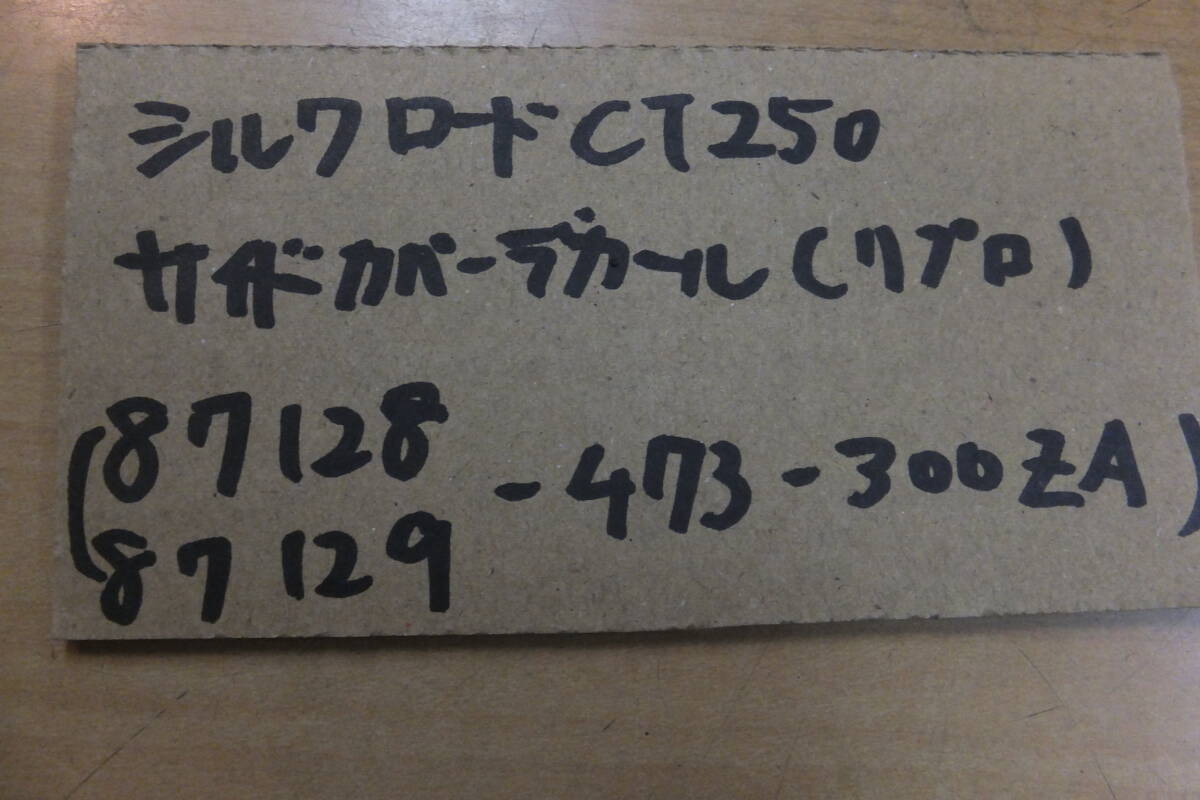 シルクロードCT250
サイドカバーデカール(リプロ)
(87128
-473-300ZA)
87129